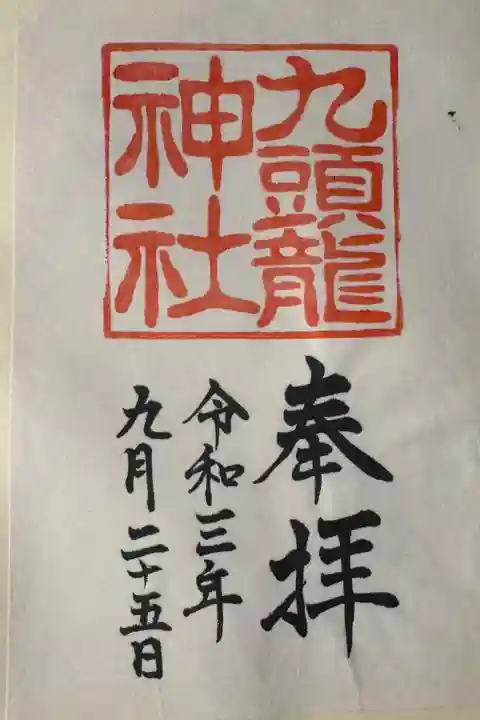 九頭龍
神社
奉拝
令和三年
九月二十五日